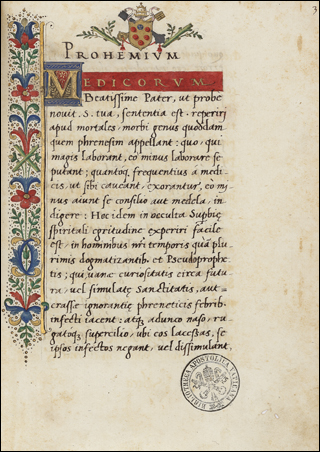 3
PROHEMIVM
MEDICORVM
Beatissime Pater, ut probe
nouit. S. tua, sententia est. reperiri
apud mortales, morbi genus quoddam
quem phrenesim appellant: quo, qui
magis laborant, eo minus laborare se
putant; quantoq. frequentius a medi-
cis, ut sibi caueant, exorantur, eo mi-
nus aiunt se consilio aut medela, in
digere: Hoc idem in occulta Supbię
spiritali egritudine experiri facile
est, in hominibus nri temporis quā plu
rimis dogmatizantib. et Pseudoprophe
tis; qui uane curiositatis circa futu
ra, uel simulatę Sanctitatis, aut
crassę ignorantię phreneticis febrib.
infecti iacent: atq. adunco naso, ru
gatoq. supercilio, ubi eos lacessas, se
ipsos infectos negant, uel dissimulant.
BIBLIOTHECA APOSTOLICA VATICANA